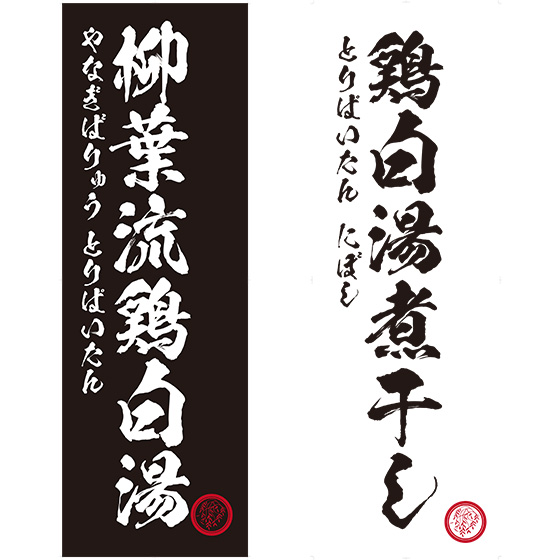 柳葉流鶏白湯
やなぎばりゅう とりぱいたん
鶏白湯煮干し
とりぱいたん にぼし